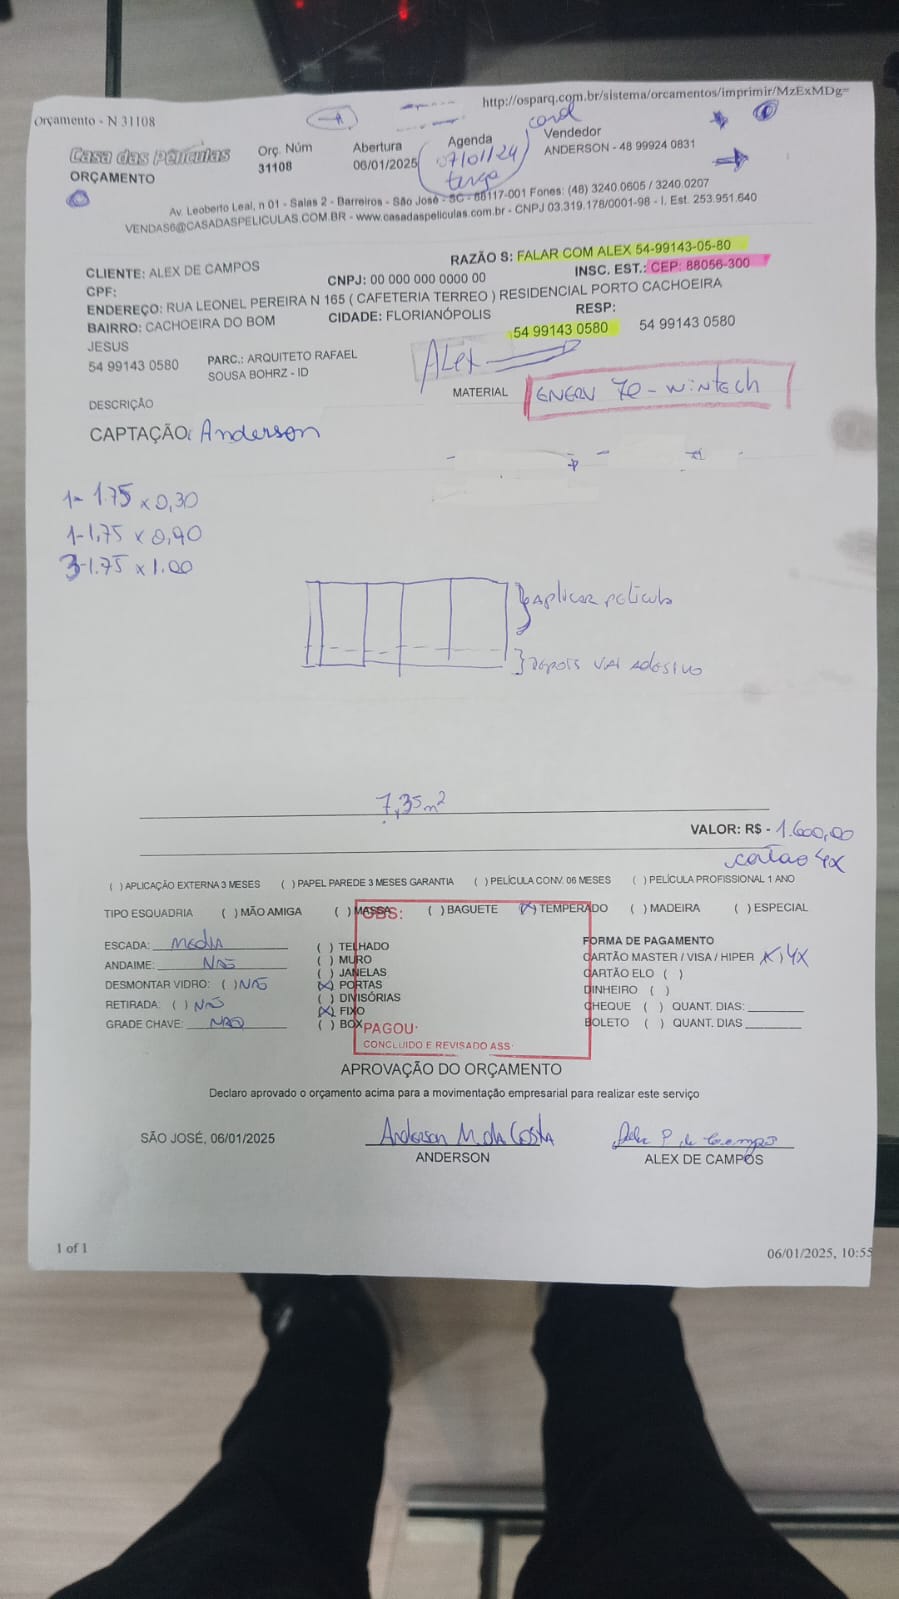 http://osparq.com.br/sistema/orcamentos/imprimir/MzExMDg=
Orçamento - N 31108
Casa das Películas
ORÇAMENTO
Orç. Núm
31108
Abertura
06/01/2025
Agenda
07/01/24
terça
Vendedor
ANDERSON - 48 99924 0831
Av. Leoberto Leal, n 01 - Salas 2 - Barreiros - São José - SC - 88117-001 Fones: (48) 3240.0605 / 3240.0207
VENDAS6@CASADASPELICULAS.COM.BR - www.casadaspeliculas.com.br - CNPJ 03.319.178/0001-98 - I. Est. 253.951.640
CLIENTE: ALEX DE CAMPOS
RAZÃO S: FALAR COM ALEX 54-99143-05-80
CPF:
CNPJ: 00 000 000 0000 00
INSC. EST.: CEP: 88056-300
ENDEREÇO: RUA LEONEL PEREIRA N 165 ( CAFETERIA TERREO ) RESIDENCIAL PORTO CACHOEIRA
BAIRRO: CACHOEIRA DO BOM
JESUS
CIDADE: FLORIANÓPOLIS
RESP:
54 99143 0580
54 99143 0580
54 99143 0580
PARC.: ARQUITETO RAFAEL
SOUSA BOHRZ - ID
Alex
DESCRIÇÃO
MATERIAL
70 - Wintech
CAPTAÇÃO: Anderson
1- 1.75 x 0,30
1- 1,75 x 0,90
3- 1.75 x 1.00
Aplicar película
Depois vai adesivo
7,35 m²
VALOR: R$ - 1.600,00
cartao 4x
( ) APLICAÇÃO EXTERNA 3 MESES ( ) PAPEL PAREDE 3 MESES GARANTIA ( ) PELÍCULA CONV. 06 MESES ( ) PELÍCULA PROFISSIONAL 1 ANO
TIPO ESQUADRIA ( ) MÃO AMIGA ( ) MASSA ( ) BAGUETE (X) TEMPERADO ( ) MADEIRA ( ) ESPECIAL
OBS:
ESCADA: Media
ANDAIME: NÃO
DESMONTAR VIDRO: ( ) NÃO
RETIRADA: ( ) NÃO
GRADE CHAVE: NÃO
( ) TELHADO
( ) MURO
( ) JANELAS
(X) PORTAS
( ) DIVISÓRIAS
(X) FIXO
( ) BOX
PAGOU:
CONCLUIDO E REVISADO ASS:
FORMA DE PAGAMENTO
CARTÃO MASTER / VISA / HIPER (X) 4X
CARTÃO ELO ( )
DINHEIRO ( )
CHEQUE ( ) QUANT. DIAS:
BOLETO ( ) QUANT. DIAS
APROVAÇÃO DO ORÇAMENTO
Declaro aprovado o orçamento acima para a movimentação empresarial para realizar este serviço
SÃO JOSÉ, 06/01/2025
Anderson M. da Costa
ANDERSON
Alex P. de Campos
ALEX DE CAMPOS
1 of 1
06/01/2025, 10:55